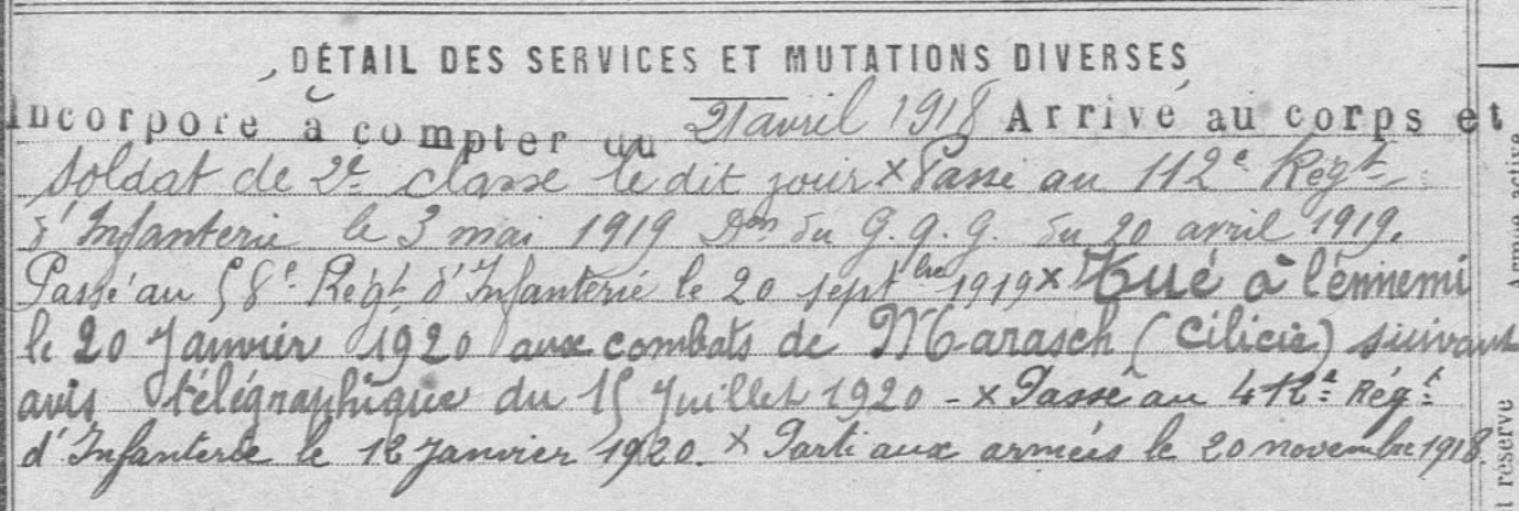 DÉTAIL DES SERVICES ET MUTATIONS DIVERSES
Incorporé à compter du 21 avril 1918 Arrivé au corps et
soldat de 2e classe le dit jour x Passé au 112e Régt
d'Infanterie le 3 mai 1919 Don du G.Q.G. du 20 avril 1919.
Passé au 58e Régt d'Infanterie le 20 septbre 1919 x Tué à l'énnemi
le 20 Janvier 1920 aux combats de Marasch (Cilicie) suivant
avis télégraphique du 15 Juillet 1920 - x Passé au 412e Régt
d'Infanterie le 12 Janvier 1920. x Parti aux armées le 20 novembre 1918.
Armée active
t réserve